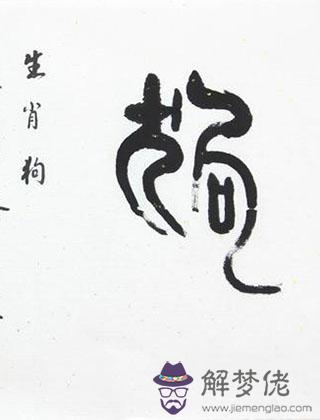 生肖狗
狗
解梦佬
www.jiemenglao.com